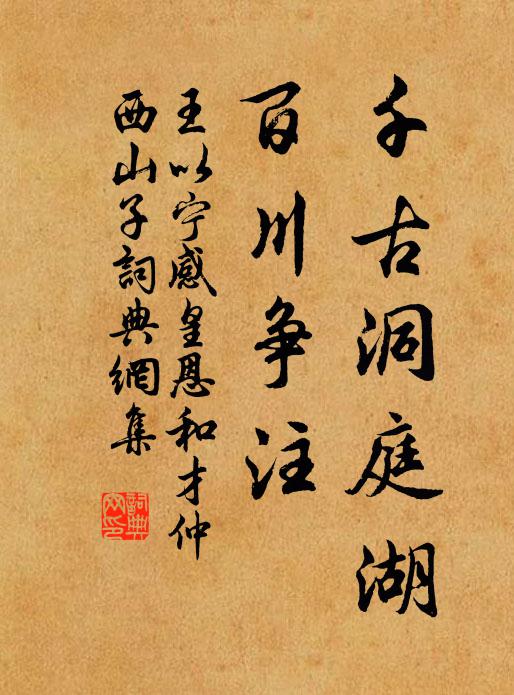 千古洞庭湖
百川争注
王以宁感皇恩和才仲
西山子詞典網集
詞典網印